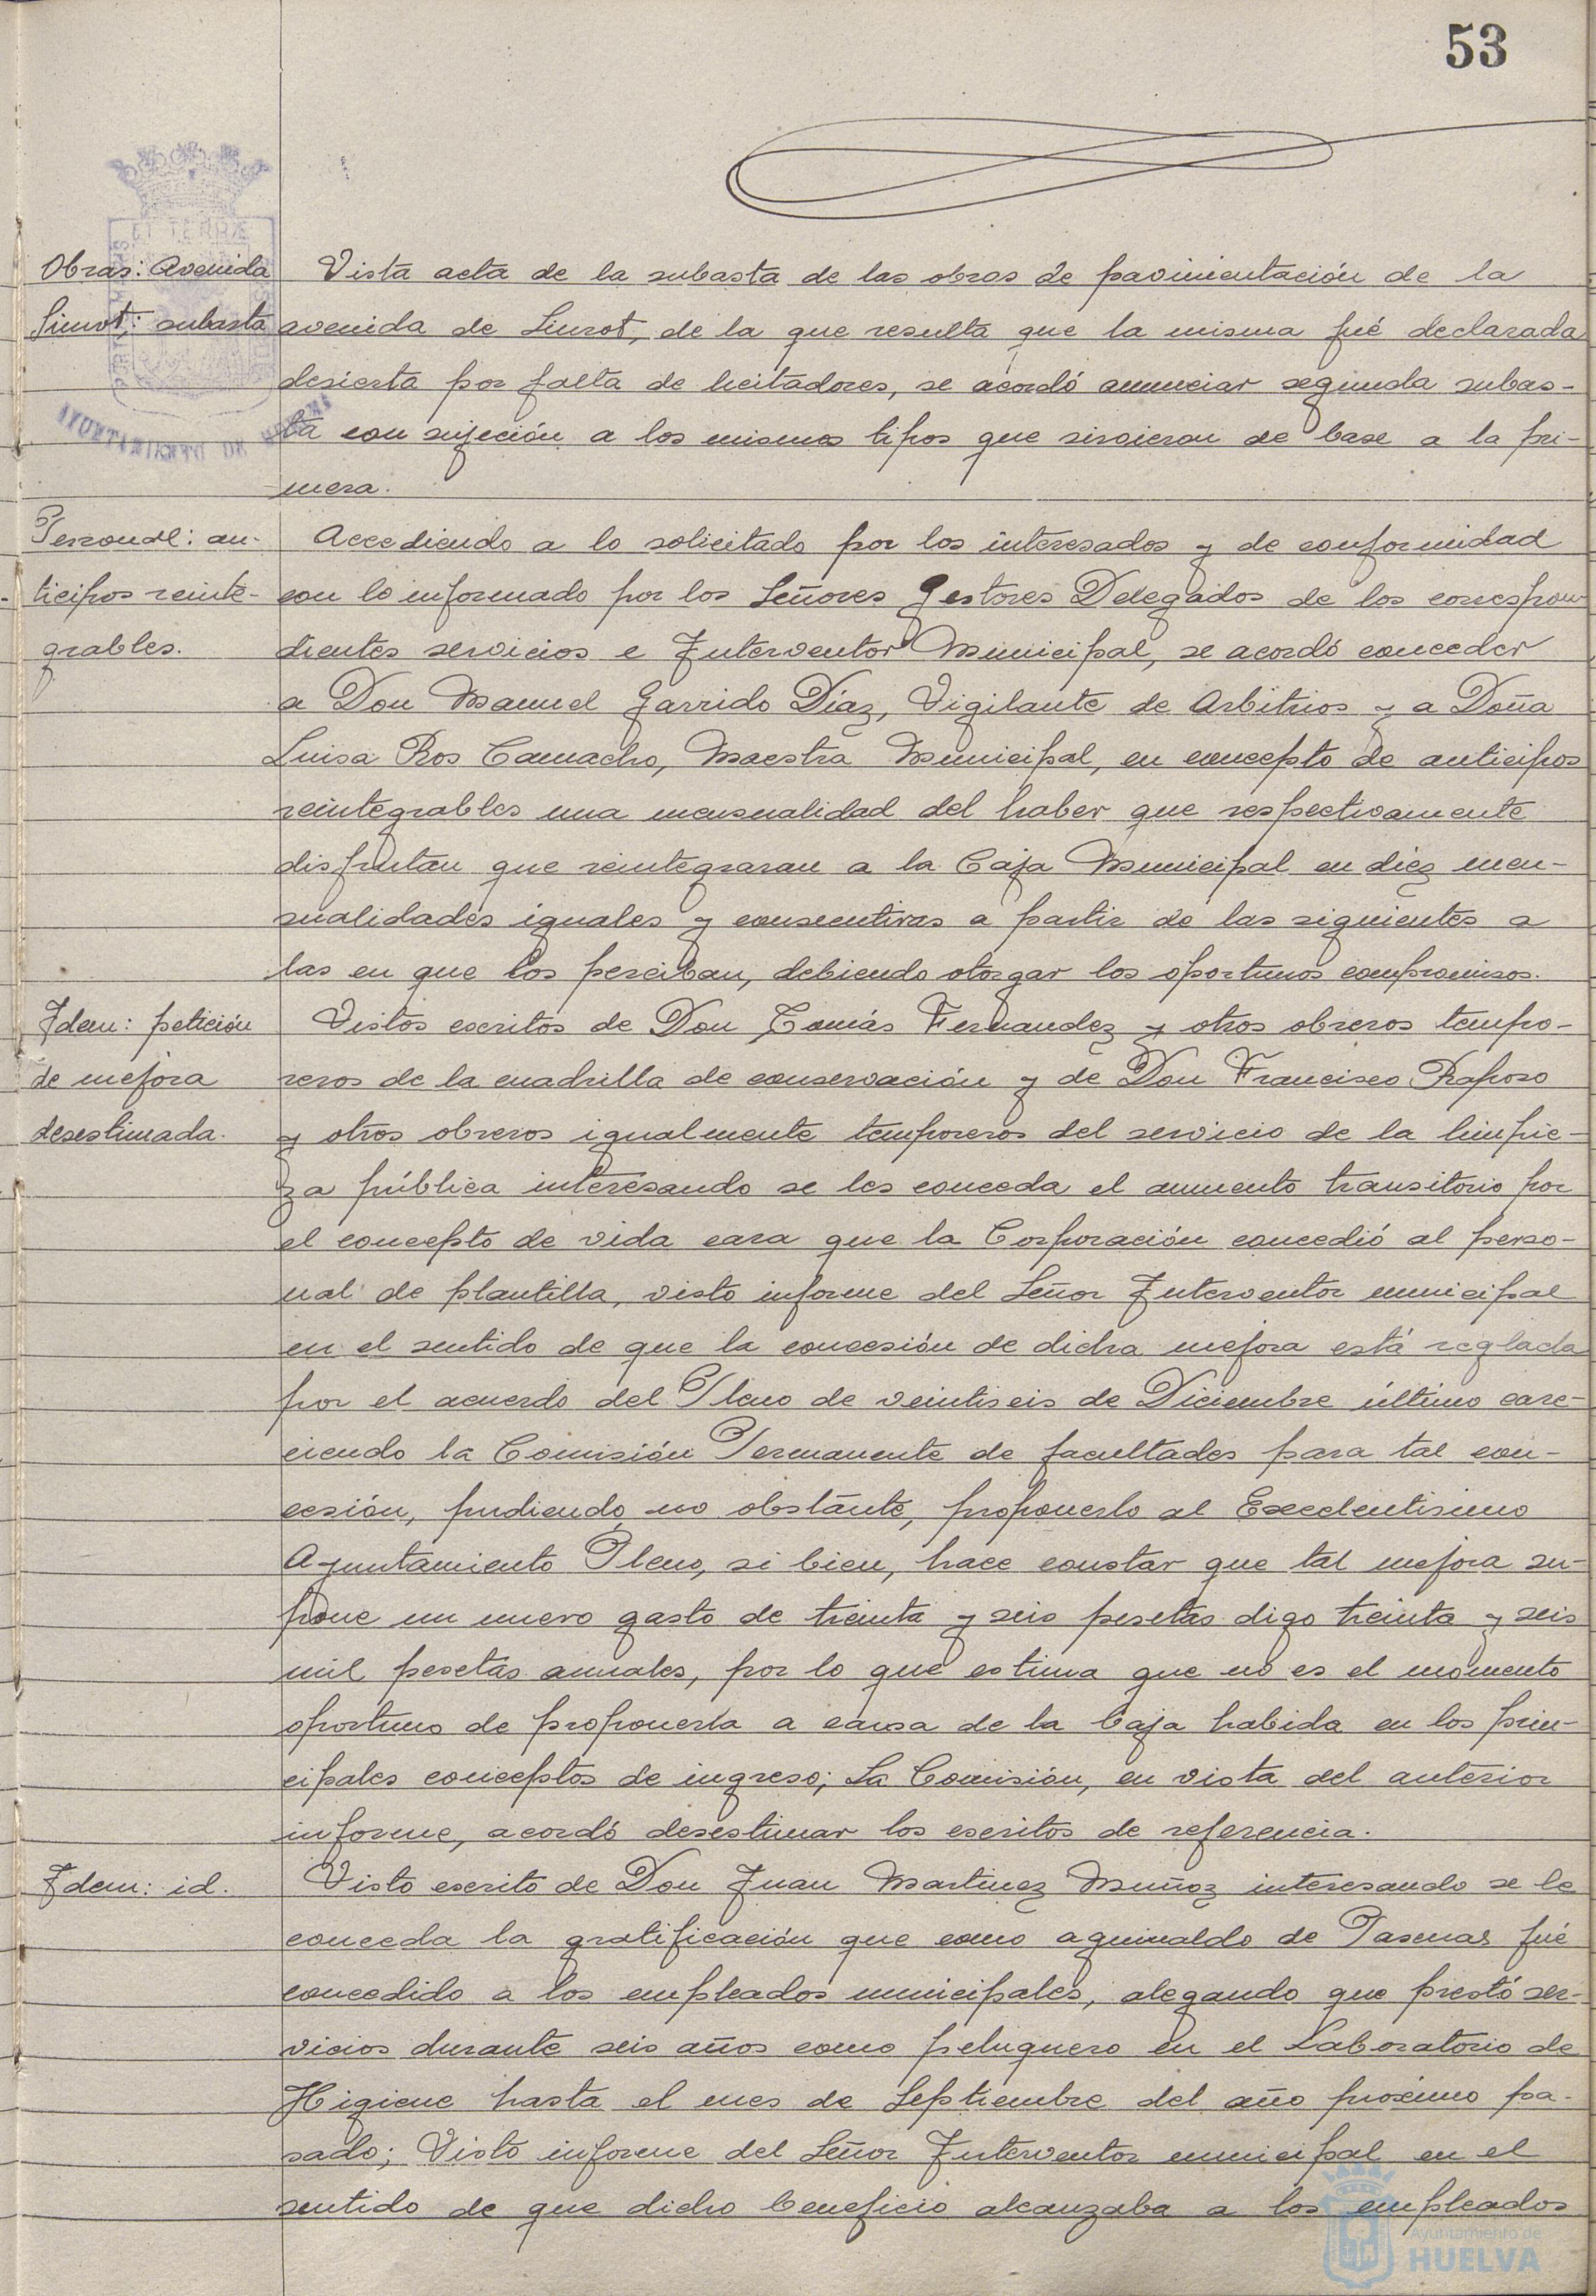 53
Obras: Avenida
Simrot; subasta
Vista acta de la subasta de las obras de pavimentación de la
avenida de Simrot, de la que resulta que la misma fué declarada
desierta por falta de licitadores, se acordó anunciar segunda subas-
ta con sujeción a los mismos tipos que sirvieron de base a la pri-
mera.
Personal: an-
ticipos reinte-
grables.
Accediendo a lo solicitado por los interesados y de conformidad
con lo informado por los Señores Gestores Delegados de los correspon-
dientes servicios e Interventor Municipal, se acordó conceder
a Don Manuel Garrido Díaz, Vigilante de Arbitrios y a Doña
Luisa Ros Camacho, Maestra Municipal, en concepto de anticipos
reintegrables una mensualidad del haber que respectivamente
disfrutan que reintegraran a la Caja Municipal en diez men-
sualidades iguales y consecutivas a partir de las siguientes a
las en que los perciban, debiendo otorgar los oportunos compromisos.
Idem: petición
de mejora
desestimada.
Vistos escritos de Don Tomás Fernandez y otros obreros tempo-
reros de la cuadrilla de conservación y de Don Francisco Raposo
y otros obreros igualmente temporeros del servicio de la limpie-
za pública interesando se les conceda el aumento transitorio por
el concepto de vida cara que la Corporación concedió al perso-
nal de plantilla, visto informe del Señor Interventor municipal
en el sentido de que la concesión de dicha mejora está reglada
por el acuerdo del Pleno de veintiseis de Diciembre último care-
ciendo la Comisión Permanente de facultades para tal con-
cesión, pudiendo no obstante, proponerlo al Excelentisimo
Ayuntamiento Pleno, si bien, hace constar que tal mejora su-
pone un nuevo gasto de treinta y seis pesetas digo treinta y seis
mil pesetas anuales, por lo que estima que no es el momento
oportuno de proponerla a causa de la baja habida en los prin-
cipales conceptos de ingreso; La Comisión, en vista del anterior
informe, acordó desestimar los escritos de referencia.
Idem: id.
Visto escrito de Don Juan Martinez Muñoz interesando se le
conceda la gratificación que como aguinaldo de Pascuas fué
concedido a los empleados municipales, alegando que prestó ser-
vicios durante seis años como peluquero en el Laboratorio de
Higiene hasta el mes de Septiembre del año próximo pa-
sado; Visto informe del Señor Interventor municipal en el
sentido de que dicho beneficio alcanzaba a los empleados
Ayuntamiento de
HUELVA